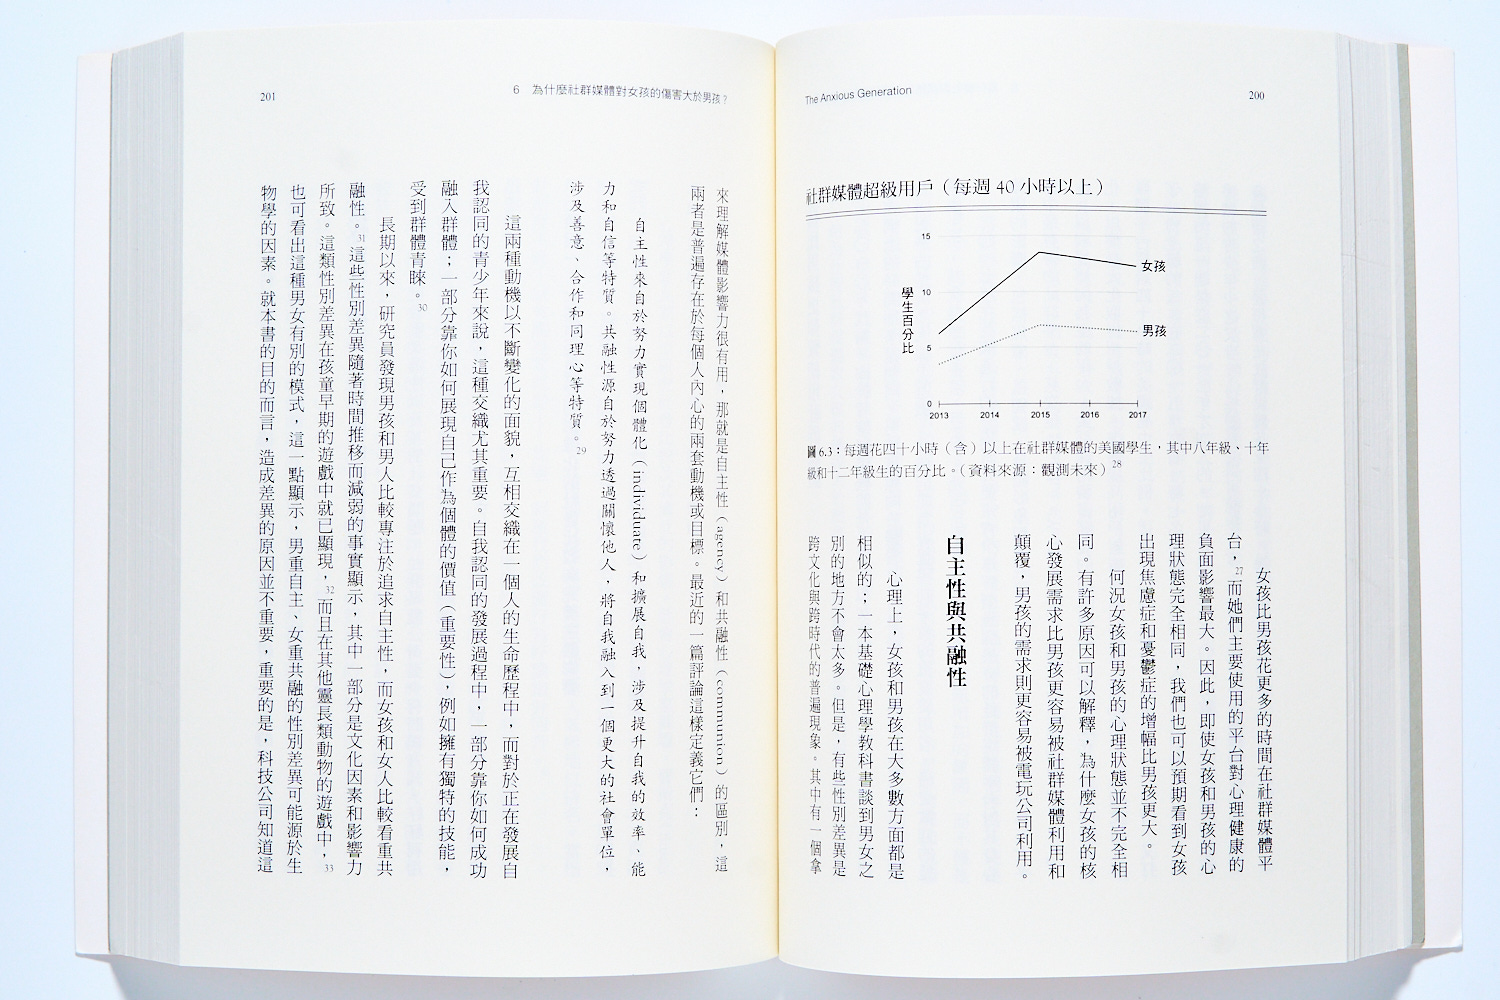 The Anxious Generation
200
社群媒體超級用戶（每週 40 小時以上）
15
10
5
0
學生百分比
女孩
男孩
2013 2014 2015 2016 2017
圖 6.3：每週花四十小時（含）以上在社群媒體的美國學生，其中八年級、十年
級和十二年級生的百分比。（資料來源：觀測未來）28
女孩比男孩花更多的時間在社群媒體平
台，27而她們主要使用的平台對心理健康的
負面影響最大。因此，即使女孩和男孩的心
理狀態完全相同，我們也可以預期看到女孩
出現焦慮症和憂鬱症的增幅比男孩更大。
何況女孩和男孩的心理狀態並不完全相
同。有許多原因可以解釋，為什麼女孩的核
心發展需求比男孩更容易被社群媒體利用和
顛覆，男孩的需求則更容易被電玩公司利用。
自主性與共融性
心理上，女孩和男孩在大多數方面都是
相似的；一本基礎心理學教科書談到男女之
別的地方不會太多。但是，有些性別差異是
跨文化與跨時代的普遍現象。其中有一個拿
6 為什麼社群媒體對女孩的傷害大於男孩？
201
來理解媒體影響力很有用，那就是自主性（agency）和共融性（communion）的區別，這
兩者是普遍存在於每個人內心的兩套動機或目標。最近的一篇評論這樣定義它們：
自主性來自於努力實現個體化（individuate）和擴展自我，涉及提升自我的效率、能
力和自信等特質。共融性源自於努力透過關懷他人，將自我融入到一個更大的社會單位，
涉及善意、合作和同理心等特質。29
這兩種動機以不斷變化的面貌，互相交織在一個人的生命歷程中，而對於正在發展自
我認同的青少年來說，這種交織尤其重要。自我認同的發展過程中，一部分靠你如何成功
融入群體；一部分靠你如何展現自己作為個體的價值（重要性），例如擁有獨特的技能，
受到群體青睞。30
長期以來，研究員發現男孩和男人比較專注於追求自主性，而女孩和女人比較看重共
融性。31這些性別差異隨著時間推移而減弱的事實顯示，其中一部分是文化因素和影響力
所致。這類性別差異在孩童早期的遊戲中就已顯現，32而且在其他靈長類動物的遊戲中，33
也可看出這種男女有別的模式，這一點顯示，男重自主、女重共融的性別差異可能源於生
物學的因素。就本書的目的而言，造成差異的原因並不重要，重要的是，科技公司知道這